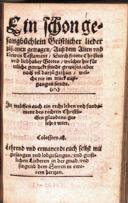 Ein schön ge-
sangbüchlein Geistlicher lieder
zusamen getragen / Auß dem Alten und
Newen Testament / durch fromme Christen
und liebhaber Gottes / welcher hie für
etliche getruckt seind gewesen / aber
noch vil darzu gethan / wel-
che nie im truck auß-
gangen seindt.
In welchen auch ein recht leben und fundament
des rechten Christlichen
glaubens ge-
lehrt wirt.
Colossern .3.
Lehrend und ermanendt euch selbst mit
gesangen und lobgesangen / und geist-
lichen Liedern in der gnad / und
singendt dem Herren in ewren
hertzen.